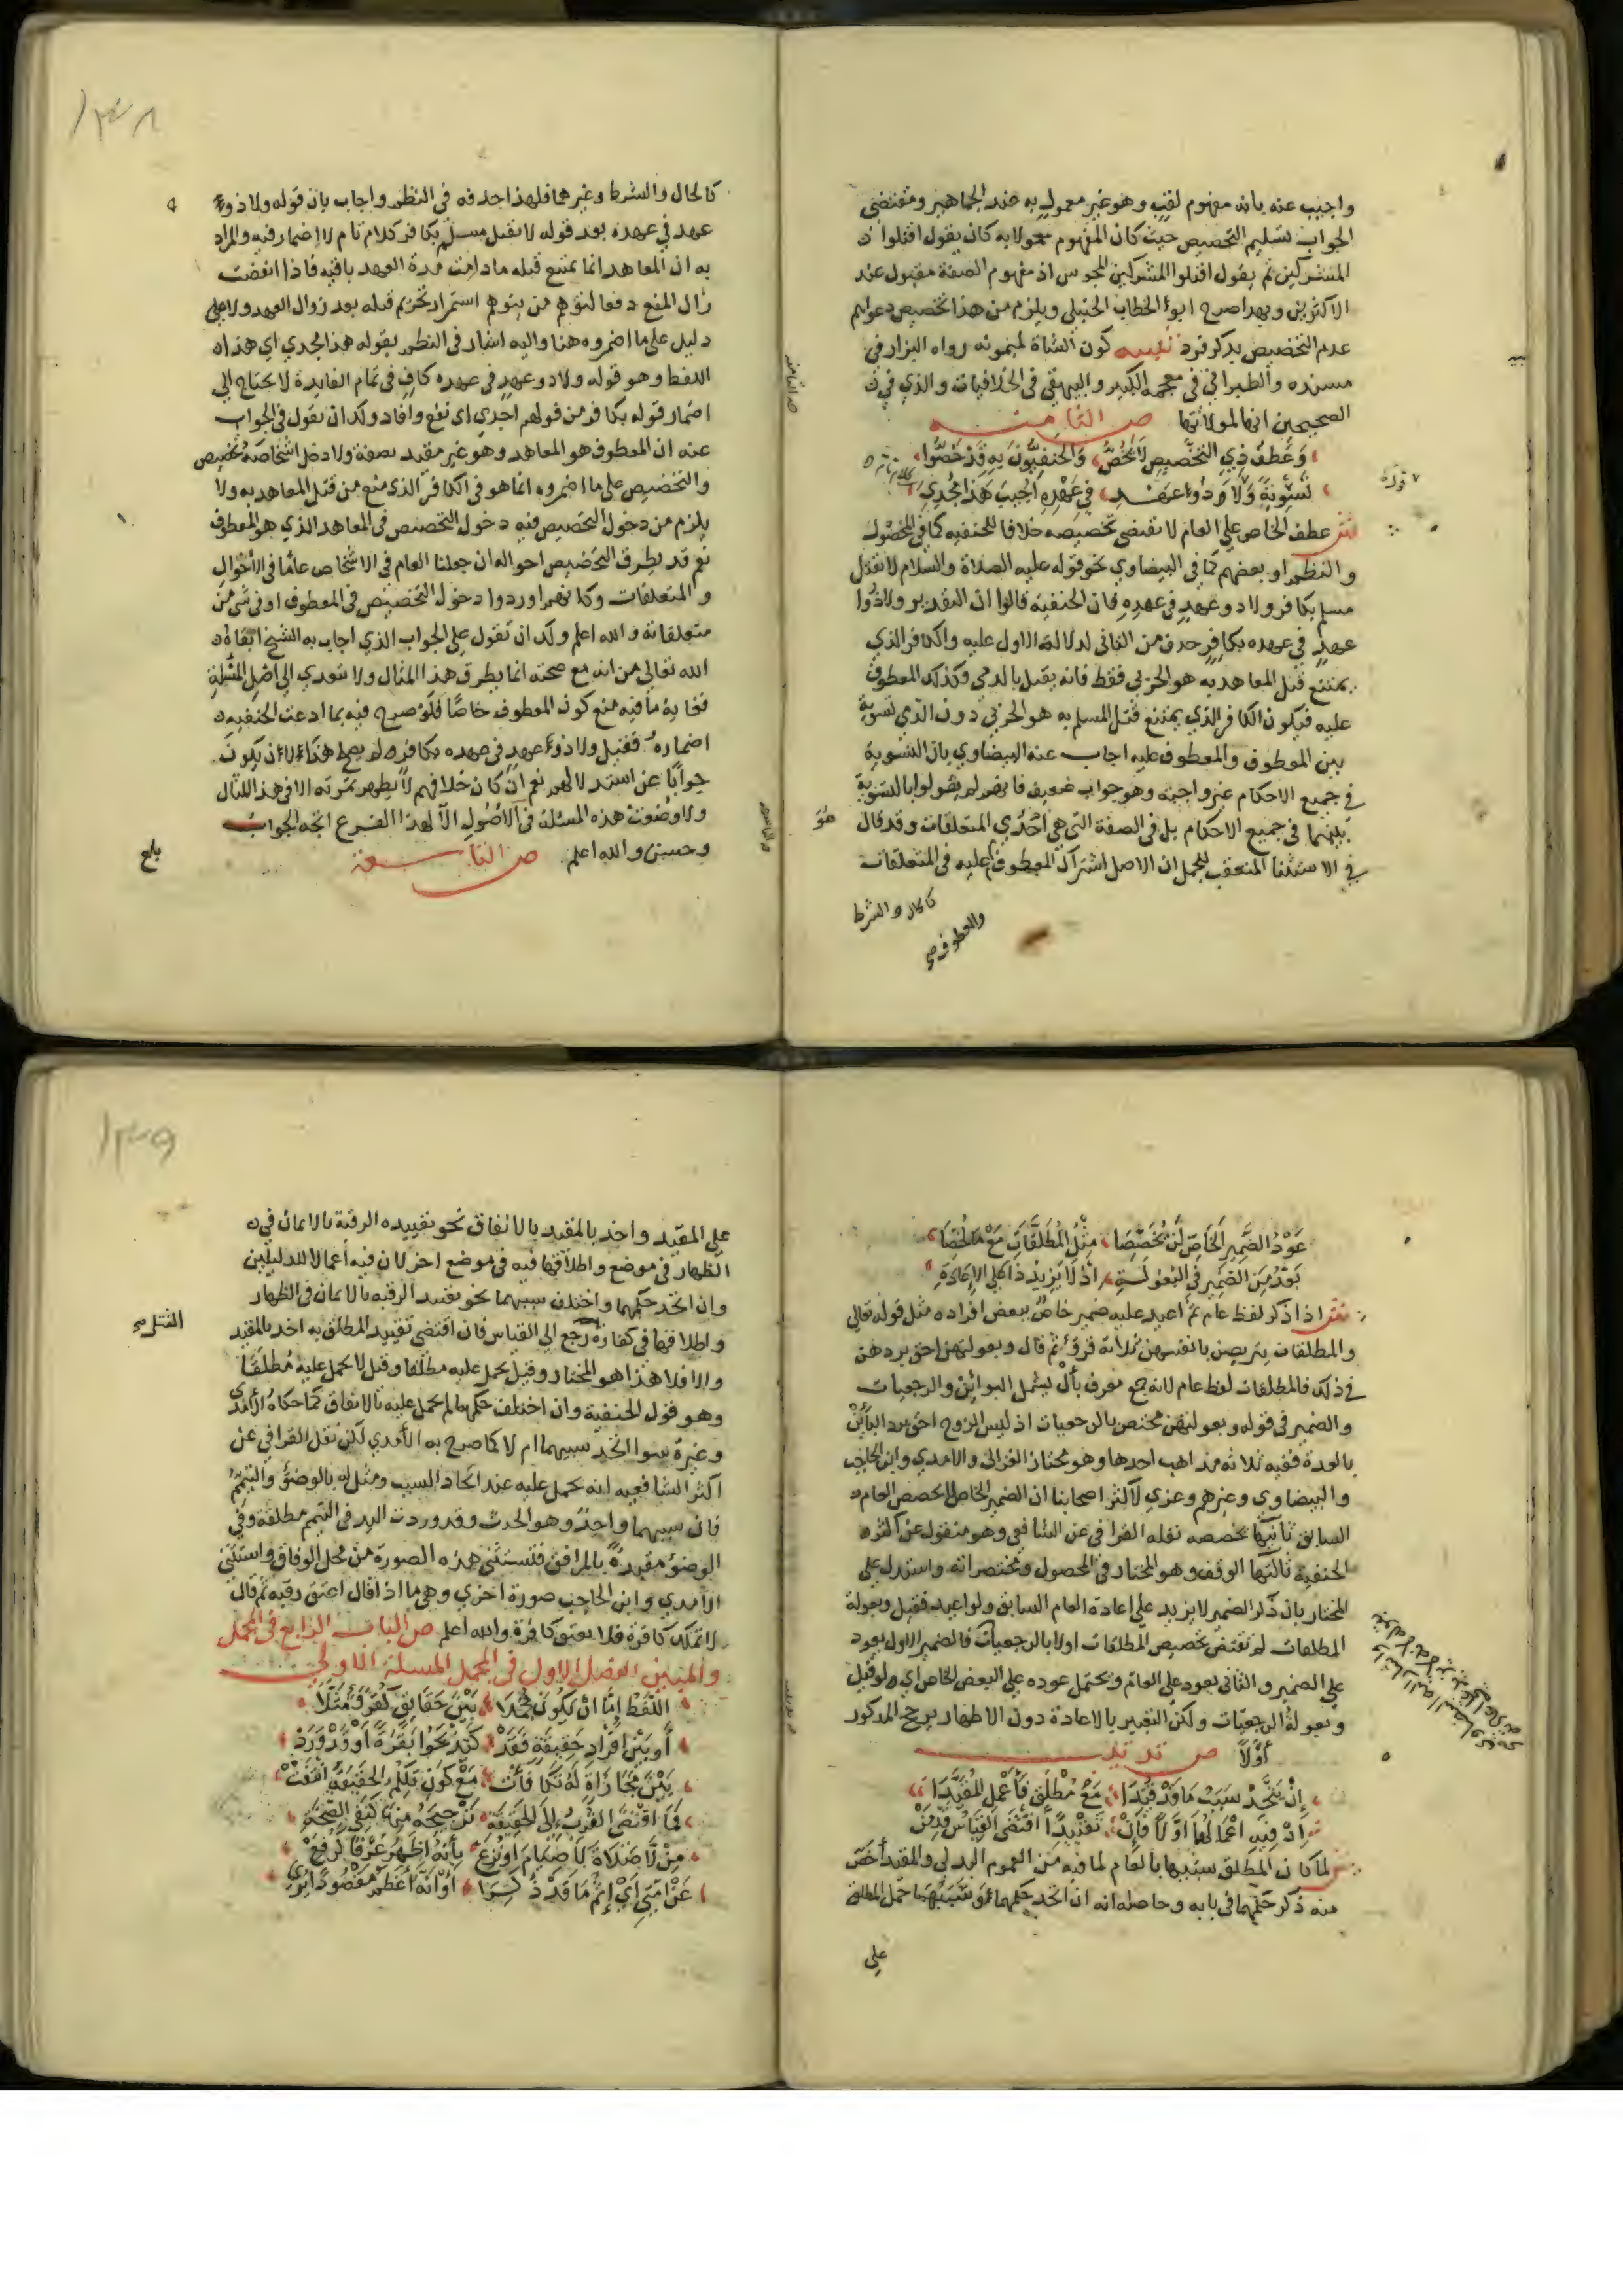 واجيب عنه بانه مفهوم لقب وهو غير معمول به عند الجماهير ومقتضى
الجواب تسليم التخصيص حيث كان المفهوم معمولا به كان يقول اقتلوا
المشركين ثم يقول اقتلوا المشركين المجوس اذ مفهوم الصفة مقبول عند
الاكثرين وبهذا صرح ابو الخطاب الحنبلي ويلزم من هذا تخصيص دعواهم
عدم التخصيص بذكر فرد تنبيه كون الشاة لميمونه رواه البزار في
مسنده والطبراني في معجمه الكبير والبيهقي في الخلافيات والذي في
الصحيحين انها لمولاتها ص الثامنه
وَعَطْفُ ذِي التخْصِيصِ لَا يَخُصُّ وَالحَنفِيُّونَ بِهِ قَدْ خَصُّوا
تَسْوِيَةً وَلَا وَذُو عَهْدٍ فِي عَهْدِهِ اُجِيبَ هَذَا مُجْدِي
قوله
كلام تام
ش عطف الخاص على العام لا يقتضي تخصيصه خلافا للحنفيه كما في المحصول
والنظم او بعضهم كما في البيضاوي نحو قوله عليه الصلاة والسلام لا يقتل
مسلم بكافر ولا ذو عهد في عهده فان الحنفية قالوا ان التقدير ولا ذوا
عهد في عهده بكافر حذف من الثاني لدلالة الاول عليه والكافر الذي
يمتنع قتل المعاهد به هو الحربي فقط فانه يقتل بالذمي وكذلك المعطوف
عليه فيكون الكافر الذي يمتنع قتل المسلم به هو الحربي دون الذمي تسوية
بين المعطوف والمعطوف عليه اجاب عنه البيضاوي بان التسوية
في جميع الاحكام غير واجبه وهو جواب ضعيف فانهم لم يقولوا بالتسوية
بينهما في جميع الاحكام بل في الصفة التي هي احدي المتعلقات وقد قال
هو
في الاستثنا المتعقب للجمل ان الاصل اشتراك المعطوف عليه في المتعلقات
والمعطوف صح
كالحال والشرط
كالحال والشرط وغيرهما فلهذا حذفه في النظم واجاب بان قوله ولا ذو
عهد في عهده بعد قوله لا يقتل مسلم بكافر كلام تام لا اضمار فيه والمراد
به ان المعاهد انما يمتنع قتله ما دامت مدة العهد باقيه فاذا انقضت
زال المنع دفعا لتوهم من يتوهم استمرار تحريم قتله بعد زوال العهد ولا على
دليل على ما اضمروه هنا واليه اشار في النظم بقوله هذا مجدي اي هذا
اللفظ وهو قوله ولا ذو عهد في عهده كاف في تمام الفايدة لا يحتاج الي
اضمار قوله بكافر من قولهم اجدي اي نفع وافاد ولك ان تقول في الجواب
عنه ان المعطوف هو المعاهد وهو غير مقيد بصفة ولا دخل اشخاصه تخصيص
والتخصيص على ما اضمروه انما هو في الكافر الذي منع من قتل المعاهد به ولا
يلزم من دخول التخصيص فيه دخول التخصيص في المعاهد الذي هو المعطوف
نعم قد يطرق التخصيص احواله ان جعلنا العام في الاشخاص عاما في الاحوال
والمتعلقات وكانهم اوردوا دخول التخصيص في المعطوف او في شي من
متعلقاته والله اعلم ولك ان تقول على الجواب الذي اجاب به الشيخ ابقاه
الله تعالي من انه مع صحته انما يطرق هذا المثال ولا يتعدي الى اصل المسئلة
فغاية ما فيه منع كون المعطوف خاصا فلو صرح فيه بما ادعت الحنفيه
اضماره فقيل ولا ذو عهد في عهده بكافر لم يصلح هذا لان يكون
جوابا عن استدلالهم نعم ان كان خلافهم لا يظهر ثمرته الا في هذا المثال
ولا وضعت هذه المسئلة في الاصول الا لهذا الفرع اتجه الجواب
وحسن والله اعلم ص التاسعة
بلغ
عَوْدُ الضَّمِيرِ الخَاصِّ لَنْ يُخَصِّصَا مِثْلُ المُطَلَّقَاتِ مَعْ مَا خُصِّصَا
بَعْدُ مِنَ الضَّمِيرِ فِي البُعُولَةِ اذْ لَا يَزِيدُ ذَا عَلَى الإِعَادَةِ
ش اذا ذكر لفظ عام ثم اعيد عليه ضمير خاص ببعض افراده مثل قوله تعالي
والمطلقات يتربصن بانفسهن ثلاثة قروء ثم قال وبعولتهن احق بردهن
في ذلك فالمطلقات لفظ عام لانه جمع معرف بأل يشمل البوائن والرجعيات
والضمير في قوله وبعولتهن مختص بالرجعيات اذ ليس الزوج احق برد البائن
بالعدة ففيه ثلاثه مذاهب احدها وهو مختار الغزالي والامدي وابن الحاجب
والبيضاوي وغيرهم وعزي لاكثر اصحابنا ان الضمير الخاص لا يخصص العام
السابق ثانيها يخصصه نقله القرافي عن الشافعي وهو منقول عن اكثر
الحنفية ثالثها الوقف وهو المختار في المحصول ومختصراته واستدل على
المختار بان ذكر الضمير لا يزيد على اعادة العام السابق ولو اعيد فقيل وبعولة
المطلقات لم تقتض تخصيص المطلقات اولا بالرجعيات فالضمير الاول يعود
على الضمير والثاني يعود على العام ويحتمل عوده على البعض الخاص اي ولو قيل
وبعولة الرجعيات ولكن التعبير بالاعادة دون الاظهار يرجح المذكور
أوّلاً ص تذنيب
إِنْ يَتَّحِدْ سَبَبُ مَا قَدْ قُيِّدَا مَعْ مُطْلَقٍ فَأَعْمِلِ المُقَيَّدَا
اذْ فِيهِ اعْمَالُهُمَا اوْ لَا فَإِنْ تَقْيِيدًا اقْتَضَى القِيَاسُ قُيِّدَنْ
ش لما كان المطلق شبيها بالعام لما فيه من العموم البدلي والمقيد أخص
منه ذكر حكمهما في بابه وحاصله انه ان اتحد حكمهما وسببهما حمل المطلق
على
على المقيد واخذ بالمقيد بالاتفاق نحو تقييده الرقبة بالايمان في
الظهار في موضع واطلاقها فيه في موضع اخر لان فيه اعمالا للدليلين
وان اتحد حكمهما واختلف سببهما نحو تقييد الرقبه بالايمان في
القتل صح
واطلاقها في كفارة رجع الى القياس فان اقتضى تقييد المطلق به اخذ بالمقيد
والا فلا هذا هو المختار وقيل يحمل عليه مطلقا وقيل لا يحمل عليه مطلقا
وهو قول الحنفية وان اختلف حكمهما لم يحمل عليه بالاتفاق كما حكاه الامدي
وغيره سوا اتحد سببهما ام لا كما صرح به الأمدي لكن نقل القرافي عن
اكثر الشافعيه انه يحمل عليه عند اتحاد السبب ومثل له بالوضوء والتيمم
فان سببهما واحد وهو الحدث وقد وردت اليد في التيمم مطلقة وفي
الوضوء مقيدة بالمرافق فلتستثنى هذه الصورة من محل الوفاق واستثنى
الآمدي وابن الحاجب صورة اخري وهي ما اذا قال اعتق رقبه ثم قال
لا تملك كافرة فلا يعتق كافرة والله اعلم ص الباب الرابع في المجمل
والمبين الفصل الاول في المجمل المسئلة الاولي
اللَّفْظُ إِمَّا انْ يَكُونَ مُجْمَلَا بَيْنَ حَقَايِقَ كَقُرْءٍ مَثَلَا
أَوْ بَيْنَ افْرَادِ حَقِيقَةٍ فَقَدْ كَتَذْبَحُوا بَقَرَةً اوْ قَدْ وَرَدْ
بَيْنَ مَجَازَاتٍ لَهُ تَكَافَأَتْ مَعْ كَوْنِ تِلْكُمُ الحَقِيقَةُ انْتَفَتْ
فَمَا اقْتَضَى القُرْبُ إِلَى الحَقِيقَة تَرْجِيحَهُ مِنْهَا كَنَفْيِ الصِّحَّة
مِنْ لَا صَلَاةَ لَا صِيَامَ اوْ نُزِعْ بِأَنَّهُ اظْهَرُ عُرْفًا كَرُفِعْ
عَنْ امَّتِي أَيْ إِثْمُ مَا قَدْ ذُكِرَا اوْ انَّهُ اعْظَمُ مَقْصُودًا يُرَى